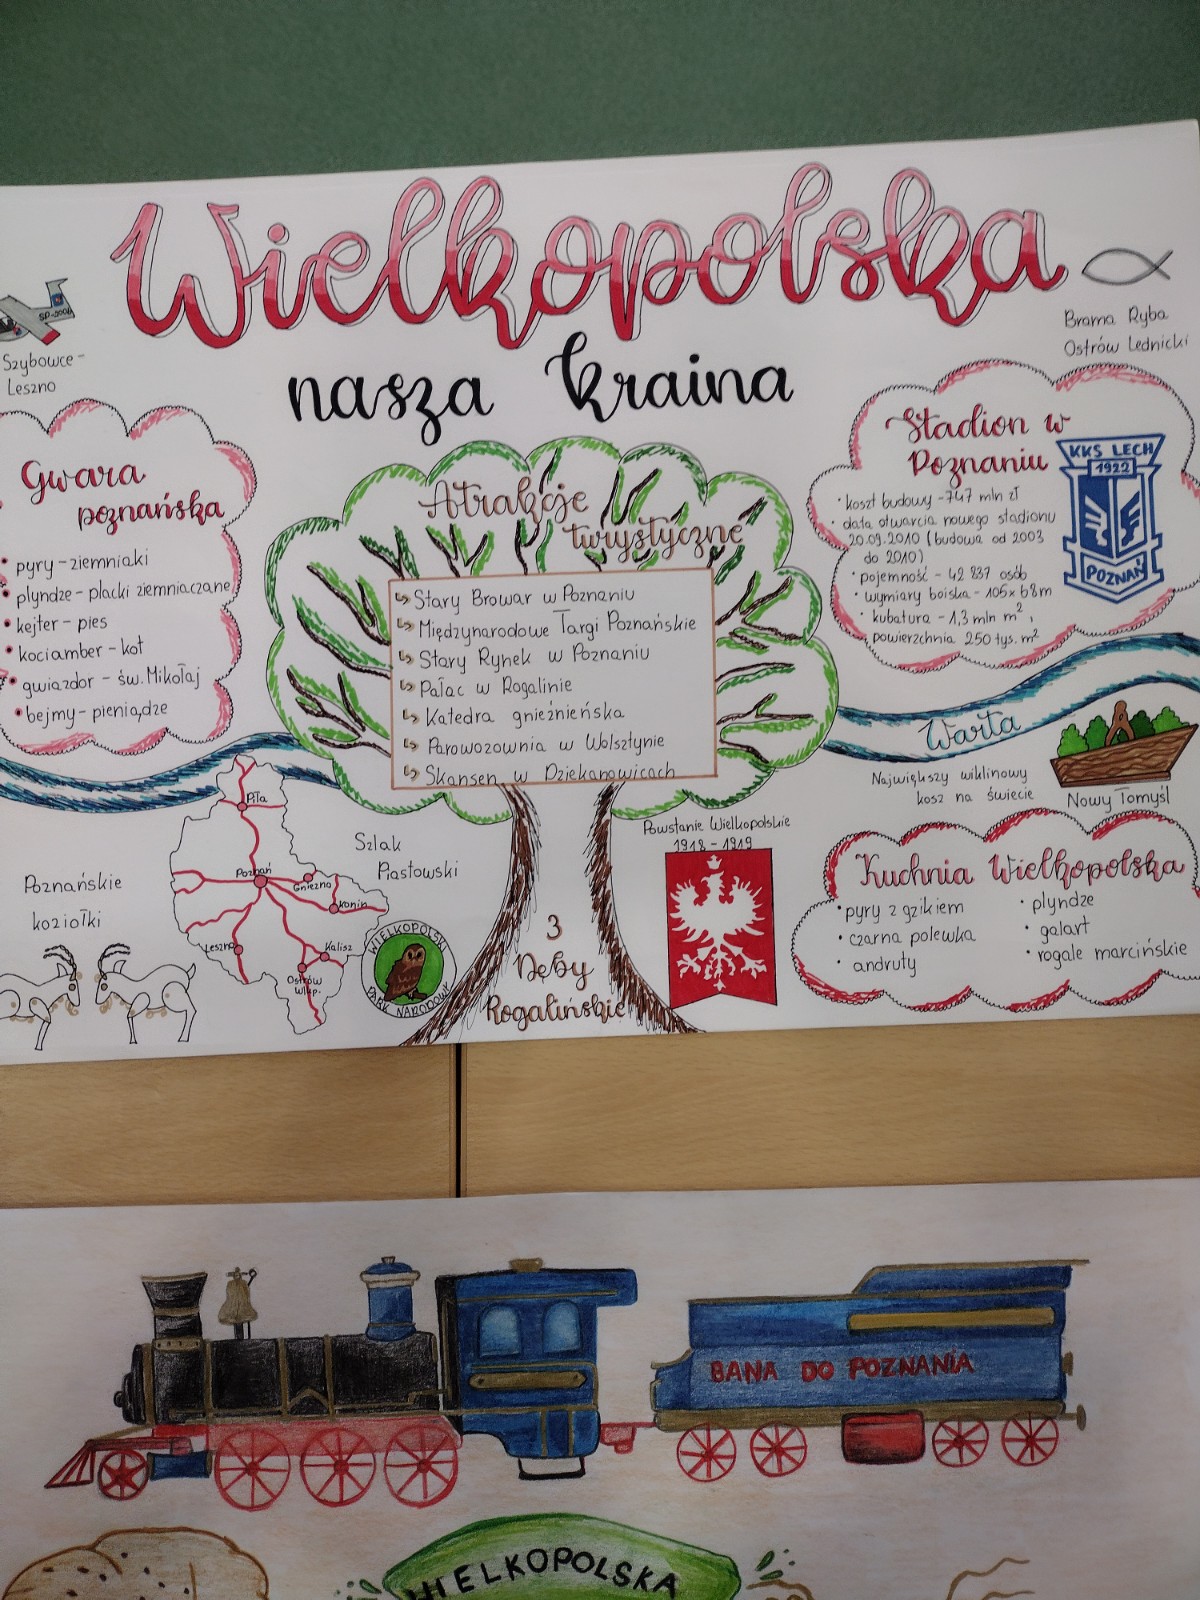 Wielkopolska
nasza kraina
SP-3004
Szybowce -
Leszno
Brama Ryba
Ostrów Lednicki
Gwara
poznańska
• pyry - ziemniaki
• plyndze - placki ziemniaczane
• kejter - pies
• kociamber - kot
• gwiazdor - św. Mikołaj
• bejmy - pieniądze
Atrakcje
turystyczne
↳ Stary Browar w Poznaniu
↳ Międzynarodowe Targi Poznańskie
↳ Stary Rynek w Poznaniu
↳ Pałac w Rogalinie
↳ Katedra gnieźnieńska
↳ Parowozownia w Wolsztynie
↳ Skansen w Dziekanowicach
Stadion w
Poznaniu
• koszt budowy - 747 mln zł
• data otwarcia nowego stadionu
20.09.2010 (budowa od 2003
do 2010)
• pojemność - 42 837 osób
• wymiary boiska - 105 x 68 m
• kubatura - 1,3 mln m²,
powierzchnia 250 tys. m²
KKS LECH
1922
POZNAŃ
Warta
Największy wiklinowy
kosz na świecie
Nowy Tomyśl
Poznańskie
koziołki
Piła
Poznań
Gniezno
Konin
Leszno
Kalisz
Ostrów
Wlkp.
Szlak
Piastowski
WIELKOPOLSKI
PARK NARODOWY
3
Dęby
Rogalińskie
Powstanie Wielkopolskie
1918 - 1919
Kuchnia Wielkopolska
• pyry z gzikiem
• czarna polewka
• andruty
• plyndze
• galart
• rogale marcińskie
BANA DO POZNANIA
WIELKOPOLSKA